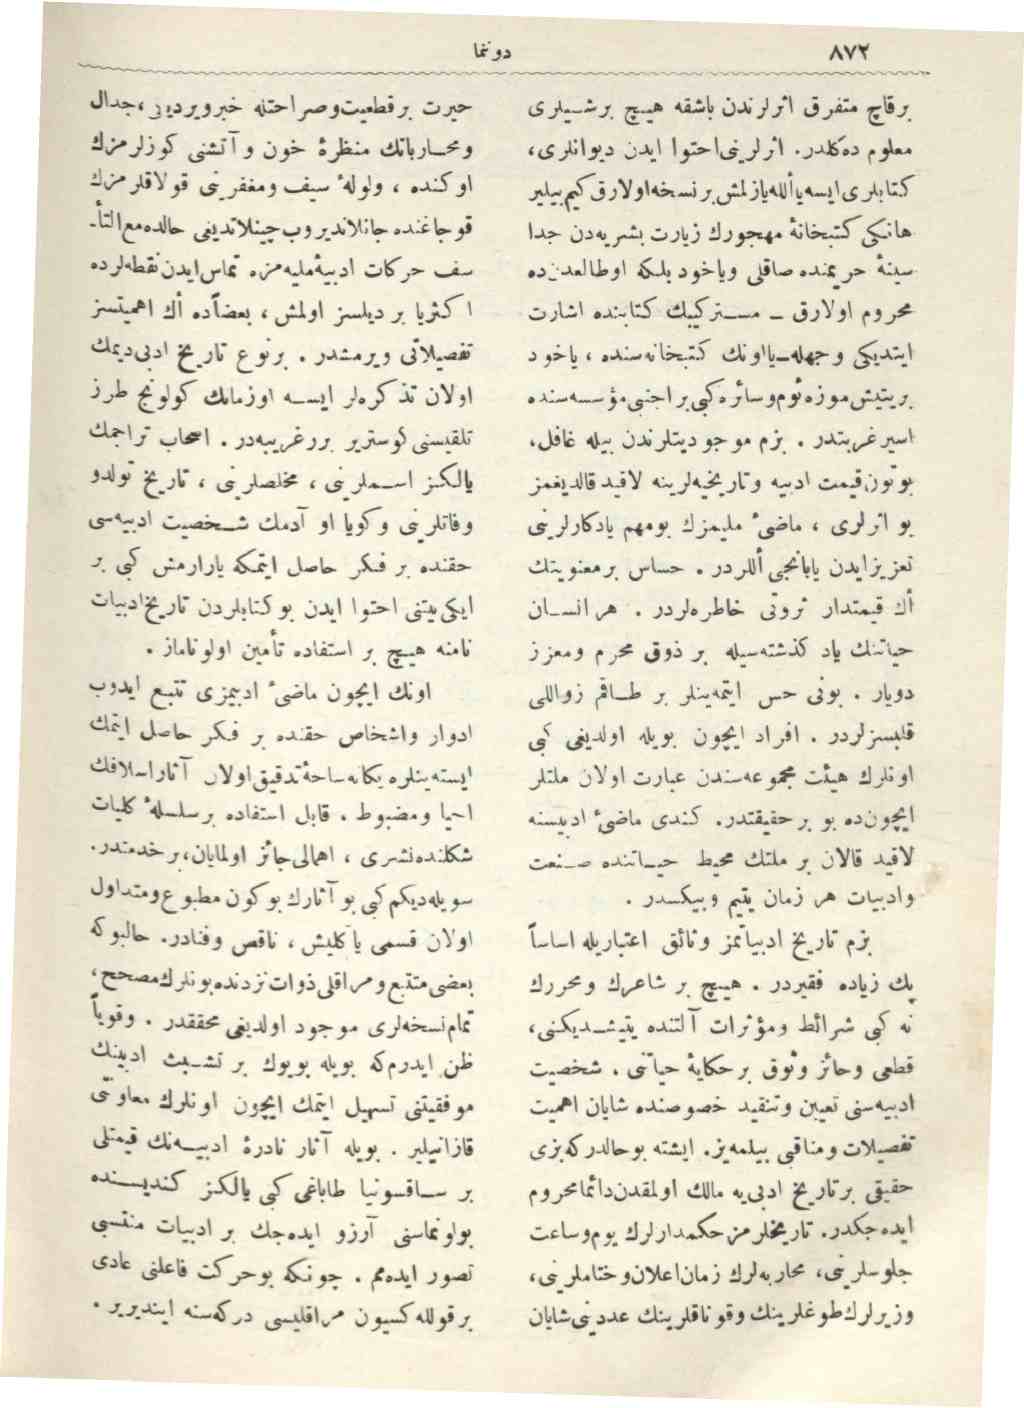 ٨٧٢
دوننما
برقاچ متفرق اثرلرندن باشقه هیچ برشیلری
معلوم ده‌كلدر. اثرلرینی احتوا ایدن دیوانلری،
كتابلری ایسه یا أللە یازلمش برنسخه اولارق كیم بیلیر
هانكی كتبخانهٔ مهجورك زیارت بشریه‌دن جدا
سینهٔ حریمنده صاقلی ویاخود بلكه اوطالعدن‌ده
محروم اولارق ـ مستركیبك كتابنده اشارت
ایتدیكی وجهله ـ یا اونك كتبخانه‌سنده ، یاخود
بریتیش موزه‌ئوم وسائره كبی بر اجنبی مؤسسه‌سنده
اسیر غربتدر . بزم موجودیتلرندن بیله غافل،
بوتون قیمت ادبیه وتاریخیه‌لرینه لاقید قالدیغمز
بو اثرلری ، ماضیٔ ملیمزك بومهم یادكارلرینی
تعزیز ایدن یابانجی أللردر . حساس برمعنویتك
أك قیمتدار ثروتی خاطره‌لردر . هر انسان
حیاتنك یاد كذشته‌سیله بر ذوق محرم ومعزز
دویار . بونی حس ایتمه‌ینلر بر طاقم زواللی
قلبسزلردر . افراد ایچون بویله اولدیغی كبی
اونلرك هیئت مجموعه‌سندن عبارت اولان ملتلر
ایچون‌ده بو برحقیقتدر. كندی ماضیٔ ادبیسنه
لاقید قالان بر ملتك محیط حیاتنده صنعت
وادبیات هر زمان یتیم وبیكسدر .
بزم تاریخ ادبیاتمز وثائق اعتباریله اساساً
پك زیاده فقیردر . هیچ بر شاعرك ومحررك
نه كبی شرائط ومؤثرات آلتنده یتیشدیكنی،
قطعی وحائز وثوق برحكایهٔ حیاتنی . شخصیت
ادبیه‌سنی تعیین وتنقید خصوصنده شایان اهمیت
تفصیلات ومناقبی بیلمه‌یز. ایشته بوحالدركه بزی
حقیقی برتاریخ ادبی‌یه مالك اولمقدن دائما محروم
ایده‌جكدر. تاریخلرمز حكمدارلرك یوم وساعت
جلوسلرینی، محاربه‌لرك زمان اعلان وختاملرینی،
وزیرلرك طوغلرینك وقوناقلرینك عددینی شایان
حیرت برقطعیت وصراحتله خبر ویردیی ، جدال
ومحارباتك منظرهٔ خون و آتشنی كوزلرمزك
اوكنده ، ولولهٔ سیف ومغفرینی قولاقلرمزك
قوجاغنده جانلاندیروب چینلاتدیغی حالده مع‌التأـ
سف حركات ادبیهٔ ملیه‌مزه تماس ایدن نقطه‌لرده
اكثریا بر دیلسز اولمش ، بعضاًده أك اهمیتسز
تفصیلاتی ویرمشدر . برنوع تاریخ ادبی دیمك
اولان تذكره‌لر ایسه اوزمانك كولونج طرز
تلقیسنی كوستریر بررغریبه‌در . اصحاب تراجمك
یالكز اسملرینی ، مخلصلرینی ، تاریخ تولدو
وفاتلرینی وكویا او آدمك شخصیت ادبیه‌سی
حقنده بر فكر حاصل ایتمكه یارارمش كبی بر
ایكی بیتنی احتوا ایدن بوكتابلردن تاریخ ادبیات
نامنه هیچ بر استفاده تأمین اولوناماز .
اونك ایچون ماضیٔ ادبیمزی تتبع ایدوب
ادوار واشخاص حقنده بر فكر حاصل ایتمك
ایسته‌ینلره یكانه ساحهٔ تدقیق اولان آثار اسلافك
احیا ومضبوط . قابل استفاده برسلسلهٔ كلیات
شكلنده نشری ، اهمالی جائز اولمایان، برخدمتدر.
سویله‌دیكم كبی بو آثارك بوكون مطبوع ومتداول
اولان قسمی یاكلیش ، ناقص وفنادر. حالبوكه
بعضی متتبع ومراقلی ذوات نزدنده بونلرك مصحح،
تمام نسخه‌لری موجود اولدیغی محققدر . وقویاً
ظن ایدرم كه بویله بویوك بر تشبث ادبینك
موفقیتنی تسهیل ایتمك ایچون اونلرك معاونتی
قازانیلیر . بویله آثار نادرهٔ ادبیه‌نك قیمتلی
بر ساقسونیا طاباغی كبی یالكز كندیسنده
بولونماسنی آرزو ایده‌جك بر ادبیات منتسبی
تصور ایده‌مم . چونكه بوحركت فاعلنی عادی
برقولله‌كسیون مراقلیسی دركه‌سنه ایندیریر .